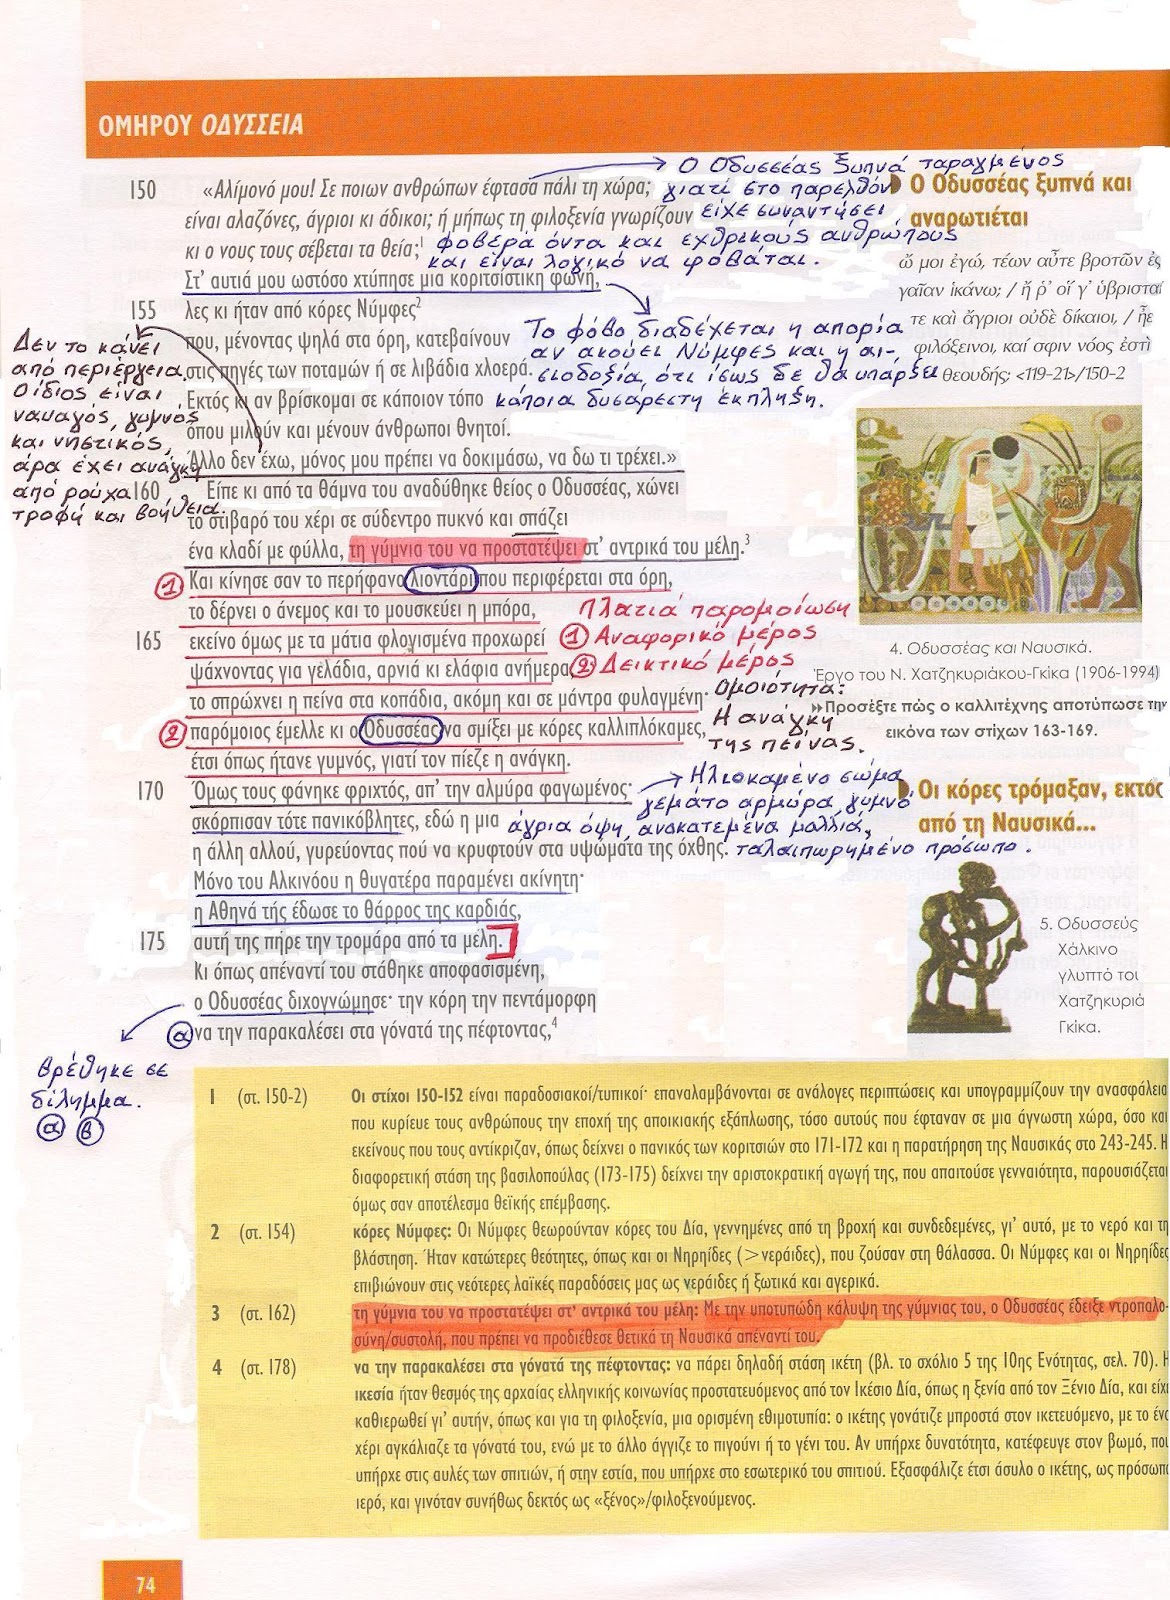 ΟΜΗΡΟΥ ΟΔΥΣΣΕΙΑ
150 «Αλίμονό μου! Σε ποιων ανθρώπων έφτασα πάλι τη χώρα;
είναι αλαζόνες, άγριοι κι άδικοι; ή μήπως τη φιλοξενία γνωρίζουν
κι ο νους τους σέβεται τα θεία;1
Στ’ αυτιά μου ωστόσο χτύπησε μια κοριτσίστικη φωνή,
155 λες κι ήταν από κόρες Νύμφες2
που, μένοντας ψηλά στα όρη, κατεβαίνουν
στις πηγές των ποταμών ή σε λιβάδια χλοερά.
Εκτός κι αν βρίσκομαι σε κάποιον τόπο
όπου μιλούν και μένουν άνθρωποι θνητοί.
Άλλο δεν έχω, μόνος μου πρέπει να δοκιμάσω, να δω τι τρέχει.»
160 Είπε κι από τα θάμνα του αναδύθηκε θείος ο Οδυσσέας, χώνει
το στιβαρό του χέρι σε σύδεντρο πυκνό και σπάζει
ένα κλαδί με φύλλα, τη γύμνια του να προστατέψει στ’ αντρικά του μέλη.3
① Και κίνησε σαν το περήφανο λιοντάρι που περιφέρεται στα όρη,
το δέρνει ο άνεμος και το μουσκεύει η μπόρα,
165 εκείνο όμως με τα μάτια φλογισμένα προχωρεί
ψάχνοντας για γελάδια, αρνιά κι ελάφια ανήμερα,
το σπρώχνει η πείνα στα κοπάδια, ακόμη και σε μάντρα φυλαγμένη·
② παρόμοιος έμελλε κι ο Οδυσσέας να σμίξει με κόρες καλλιπλόκαμες,
έτσι όπως ήτανε γυμνός, γιατί τον πίεζε η ανάγκη.
170 Όμως τους φάνηκε φριχτός, απ’ την αλμύρα φαγωμένος·
σκόρπισαν τότε πανικόβλητες, εδώ η μια
η άλλη αλλού, γυρεύοντας πού να κρυφτούν στα υψώματα της όχθης.
Μόνο του Αλκινόου η θυγατέρα παραμένει ακίνητη·
η Αθηνά τής έδωσε το θάρρος της καρδιάς,
175 αυτή της πήρε την τρομάρα από τα μέλη.
Κι όπως απέναντί του στάθηκε αποφασισμένη,
ο Οδυσσέας διχογνώμησε· την κόρη την πεντάμορφη
α να την παρακαλέσει στα γόνατά της πέφτοντας,4
Ο Οδυσσέας ξυπνά ταραγμένος
γιατί στο παρελθόν
είχε συναντήσει
φοβερά όντα και εχθρικούς ανθρώπους
και είναι λογικό να φοβάται.
Το φόβο διαδέχεται η απορία
αν ακούει Νύμφες και η αι-
σιοδοξία, ότι ίσως δε θα υπάρξει
κάποια δυσάρεστη έκπληξη.
Δεν το κάνει
από περιέργεια.
Ο ίδιος είναι
ναυαγός, γυμνός
και νηστικός,
άρα έχει ανάγκη
από ρούχα,
τροφή και βοήθεια.
Πλατιά παρομοίωση
① Αναφορικό μέρος
② Δεικτικό μέρος
Ομοιότητα:
Η ανάγκη
της πείνας.
Ηλιοκαμένο σώμα
γεμάτο αρμύρα, γυμνό,
άγρια όψη, ανακατεμένα μαλλιά,
ταλαιπωρημένο πρόσωπο.
Βρέθηκε σε
δίλημμα.
α β
Ο Οδυσσέας ξυπνά και
αναρωτιέται
ὤ μοι ἐγώ, τέων αὖτε βροτῶν ἐς
γαῖαν ἱκάνω; / ἤ ῥ’ οἵ γ’ ὑβρισταί
τε καὶ ἄγριοι οὐδὲ δίκαιοι, / ἦε
φιλόξεινοι, καί σφιν νόος ἐστὶ
θεουδής; <119-21>/150-2
4. Οδυσσέας και Ναυσικά.
Έργο του Ν. Χατζηκυριάκου-Γκίκα (1906-1994)
Προσέξτε πώς ο καλλιτέχνης αποτύπωσε την
εικόνα των στίχων 163-169.
Οι κόρες τρόμαξαν, εκτός
από τη Ναυσικά...
5. Οδυσσεύς
Χάλκινο
γλυπτό του
Χατζηκυριά
Γκίκα.
1 (στ. 150-2) Οι στίχοι 150-152 είναι παραδοσιακοί/τυπικοί· επαναλαμβάνονται σε ανάλογες περιπτώσεις και υπογραμμίζουν την ανασφάλεια
που κυρίευε τους ανθρώπους την εποχή της αποικιακής εξάπλωσης, τόσο αυτούς που έφταναν σε μια άγνωστη χώρα, όσο και
εκείνους που τους αντίκριζαν, όπως δείχνει ο πανικός των κοριτσιών στο 171-172 και η παρατήρηση της Ναυσικάς στο 243-245. Η
διαφορετική στάση της βασιλοπούλας (173-175) δείχνει την αριστοκρατική αγωγή της, που απαιτούσε γενναιότητα, παρουσιάζεται
όμως σαν αποτέλεσμα θεϊκής επέμβασης.
2 (στ. 154) κόρες Νύμφες: Οι Νύμφες θεωρούνταν κόρες του Δία, γεννημένες από τη βροχή και συνδεδεμένες, γι’ αυτό, με το νερό και τη
βλάστηση. Ήταν κατώτερες θεότητες, όπως και οι Νηρηίδες (>νεράιδες), που ζούσαν στη θάλασσα. Οι Νύμφες και οι Νηρηίδες
επιβιώνουν στις νεότερες λαϊκές παραδόσεις μας ως νεράιδες ή ξωτικά και αγερικά.
3 (στ. 162) τη γύμνια του να προστατέψει στ’ αντρικά του μέλη: Με την υποτυπώδη κάλυψη της γύμνιας του, ο Οδυσσέας έδειξε ντροπαλο-
σύνη/συστολή, που πρέπει να προδιέθεσε θετικά τη Ναυσικά απέναντί του.
4 (στ. 178) να την παρακαλέσει στα γόνατά της πέφτοντας: να πάρει δηλαδή στάση ικέτη (βλ. το σχόλιο 5 της 10ης Ενότητας, σελ. 70). Η
ικεσία ήταν θεσμός της αρχαίας ελληνικής κοινωνίας προστατευόμενος από τον Ικέσιο Δία, όπως η ξενία από τον Ξένιο Δία, και είχε
καθιερωθεί γι’ αυτήν, όπως και για τη φιλοξενία, μια ορισμένη εθιμοτυπία: ο ικέτης γονάτιζε μπροστά στον ικετευόμενο, με το ένα
χέρι αγκάλιαζε τα γόνατά του, ενώ με το άλλο άγγιζε το πιγούνι ή το γένι του. Αν υπήρχε δυνατότητα, κατέφευγε στον βωμό, που
υπήρχε στις αυλές των σπιτιών, ή στην εστία, που υπήρχε στο εσωτερικό του σπιτιού. Εξασφάλιζε έτσι άσυλο ο ικέτης, ως πρόσωπο
ιερό, και γινόταν συνήθως δεκτός ως «ξένος»/φιλοξενούμενος.
74